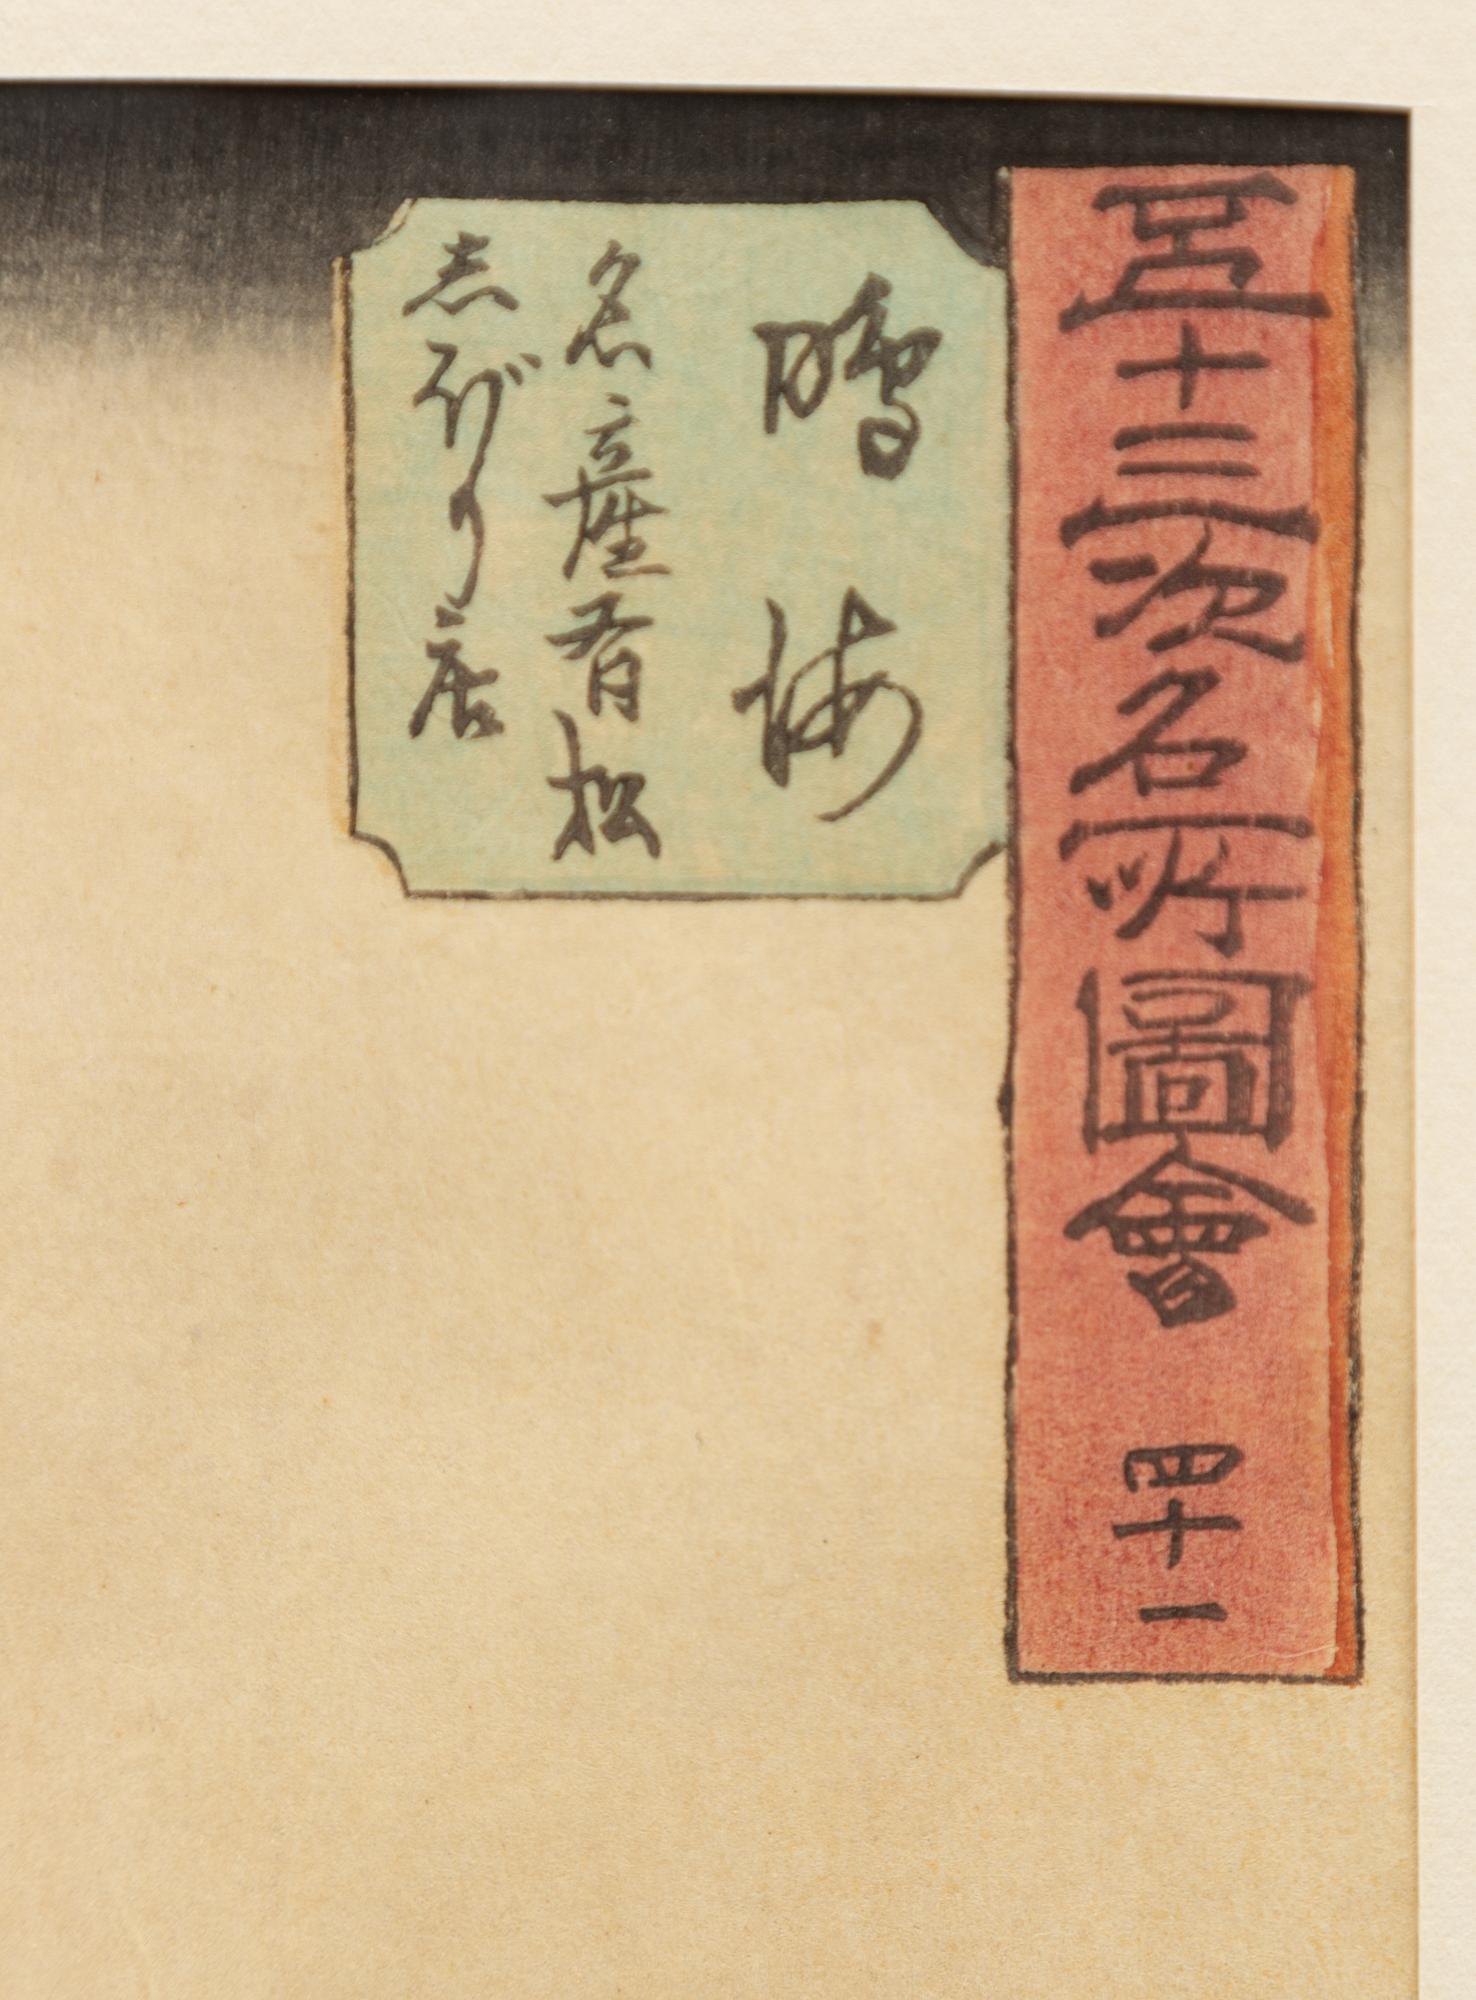 五十三次名所圖會 四十一
鳴海
名産有松
志ぼり店